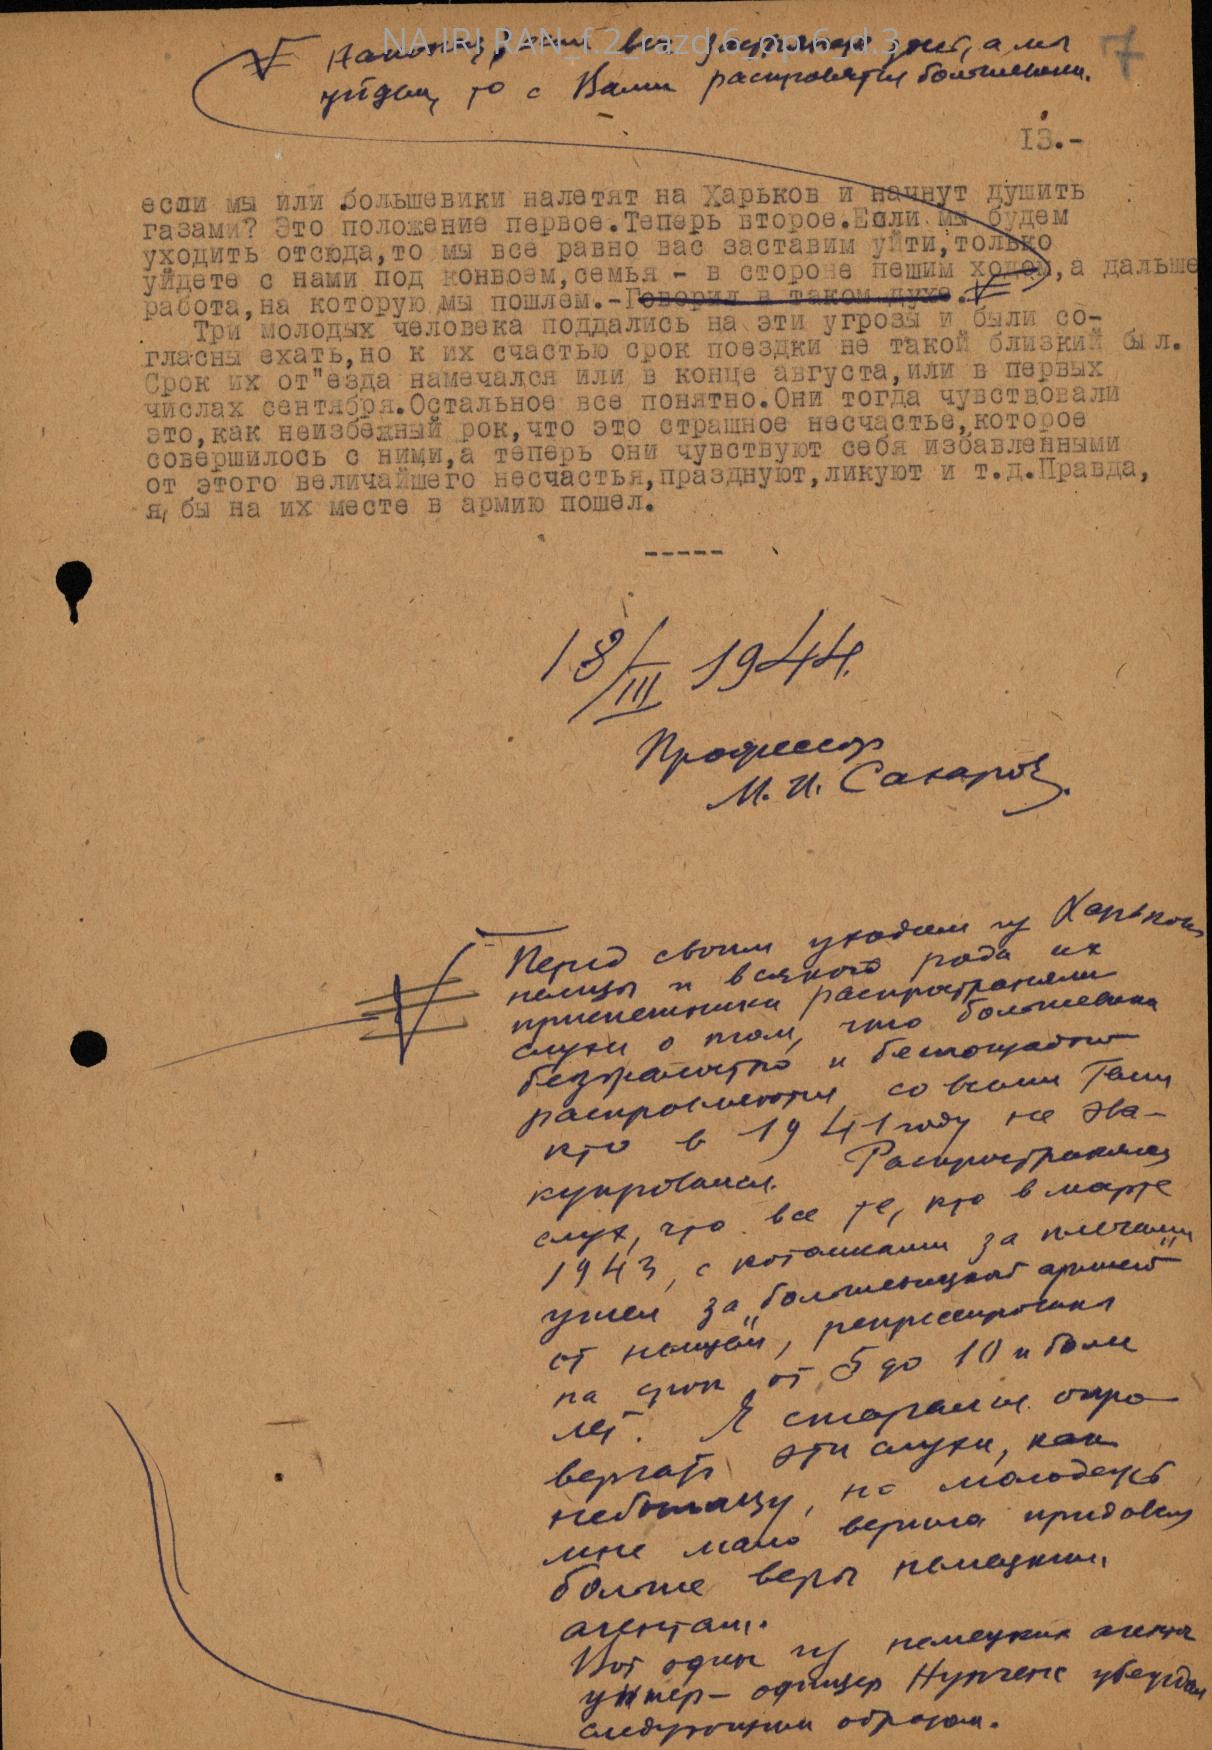 NA IRI RAN_f.2_razd.6_op.6_d.3
7
уйдем, то с Вами расправятся большевики.
13.-
если мы или большевики налетят на Харьков и начнут душить
газами? Это положение первое.Теперь второе.Если мы будем
уходить отсюда,то мы все равно вас заставим уйти,только
уйдете с нами под конвоем,семья - в стороне пешим ходом,а дальше
работа,на которую мы пошлем.-Говорил в таком духе.
Три молодых человека поддались на эти угрозы и были со-
гласны ехать,но к их счастью срок поездки не такой близкий был.
Срок их от"езда намечался или в конце августа,или в первых
числах сентября.Остальное все понятно.Они тогда чувствовали
это,как неизбежный рок,что это страшное несчастье,которое
совершилось с ними,а теперь они чувствуют себя избавленными
от этого величайшего несчастья,празднуют,ликуют и т.д.Правда,
я бы на их месте в армию пошел.
-----
18/III 1944.
Профессор
М. И. Сахаров.
Перед своим уходом из Харькова
немцы и всякого рода их
приспешники распространяли
слухи о том, что большевики
безжалостно и беспощадно
расправляются со всеми теми
кто в 1941 году не эва-
куировался. Распространялся
слух, что все те, кто в марте
1943, с котомками за плечами
ушел за "большевицкой армией"
от немцев, репрессированы
на срок от 5 до 10 и более
лет. Я старался опро-
вергать эти слухи, как
небылицу, но молодежь
мне мало верила придавая
больше веры немецким
агентам.
Вот один из немецких агентов
унтер-офицер убеждал
следующим образом.